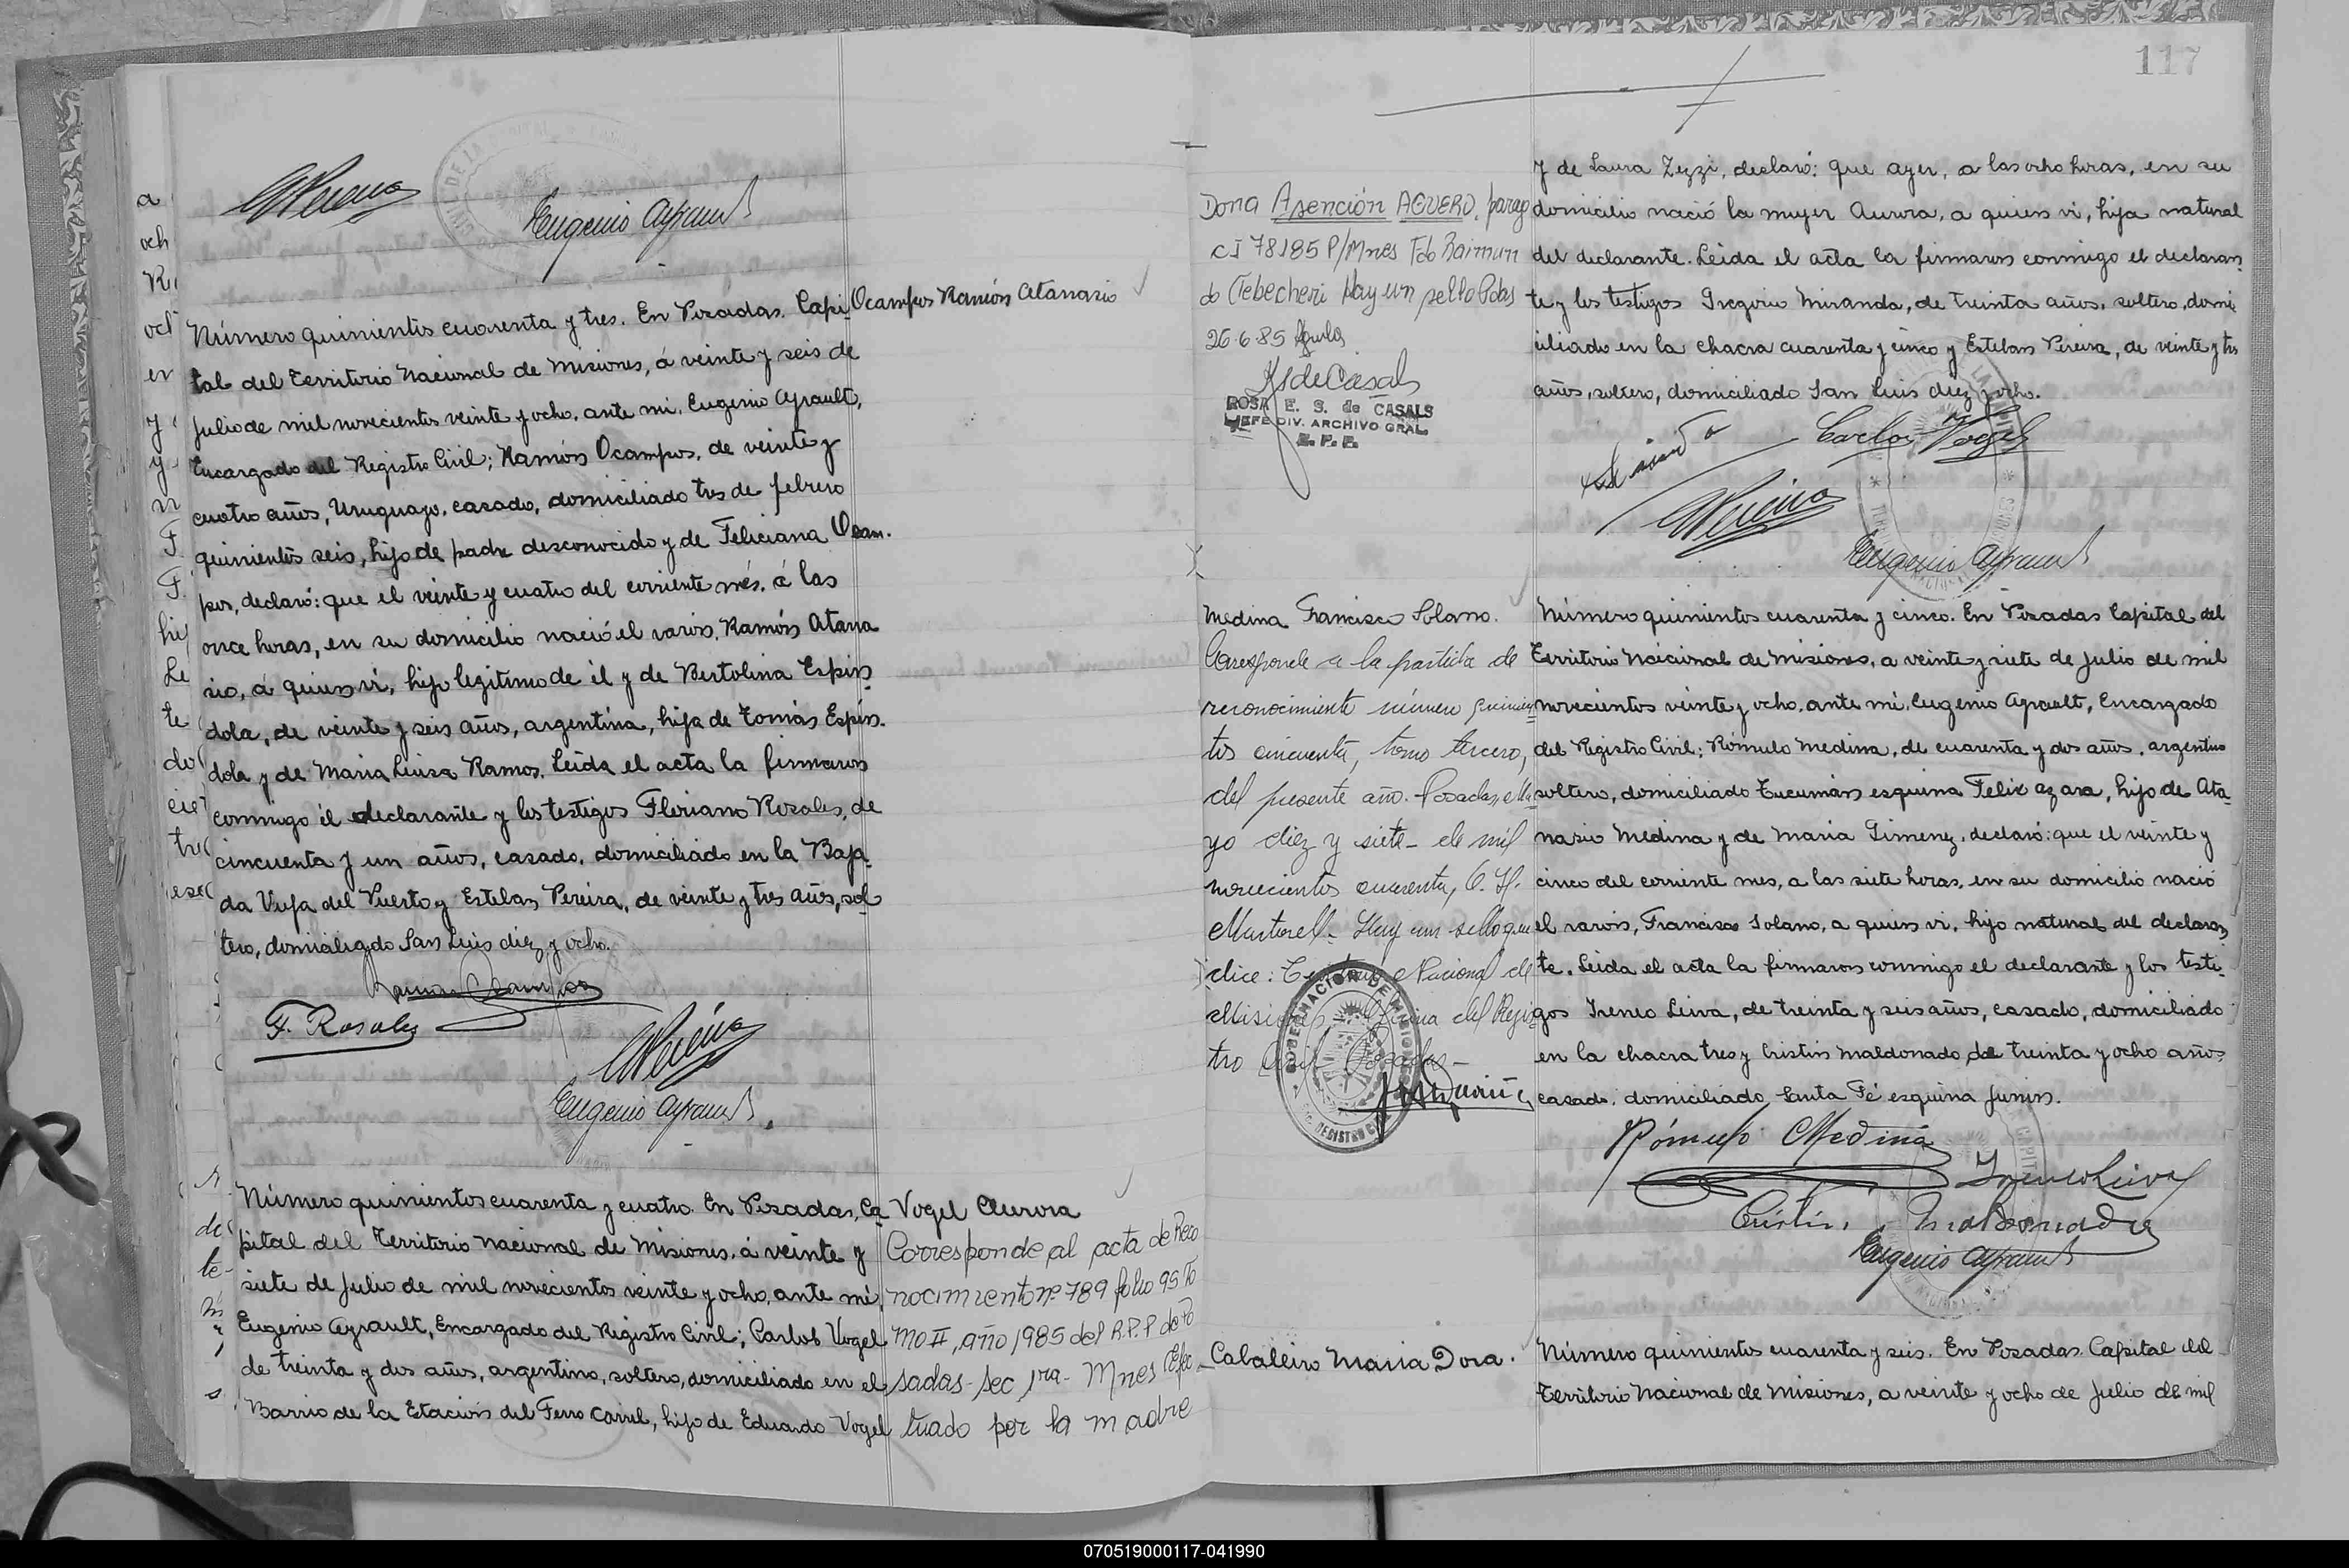 Eugenio Ayrault
Número quinientos cuarenta y tres. En Posadas. Capi-
Ocampos Ramón Atanacio
tal del Territorio Nacional de Misiones, á veinte y seis de
Julio de mil novecientos veinte y ocho, ante mi, Eugenio Ayrault,
Encargado del Registro Civil; Ramón Ocampos, de veinte y
cuatro años, Uruguayo, casado, domiciliado tres de febrero
quinientos seis, hijo de padre desconocido y de Feliciana Ocam-
pos, declaró: que el veinte y cuatro del corriente més, á las
once horas, en su domicilio nació el varón, Ramón Atana
sio, á quien vi, hijo legitimo de él y de Bertolina Espin
dola, de veinte y seis años, argentina, hija de Tomás Espin-
dola y de Maria Luisa Ramos. Leida el acta la firmaron
conmigo él declarante y los testigos Floriano Rosales, de
cincuenta y un años, casado, domiciliado en la Baja
da Vieja del Puerto y Esteban Pereira, de veinte y tres años, sol
tero, domiciliado San Luis diez y ocho.
Ramon Ocampos
F. Rosales
Eugenio Ayrault
Número quinientos cuarenta y cuatro. En Posadas, Ca
pital del Territorio Nacional de Misiones, á veinte y
siete de Julio de mil novecientos veinte y ocho, ante mi,
Eugenio Ayrault, Encargado del Registro Civil; Carlos Vogel
de treinta y dos años, argentino, soltero, domiciliado en el
Barrio de la Estación del Ferro Carril, hijo de Eduardo Vogel
Vogel Aurora
Corresponde al acta de Reco
nocimiento nº 789 folio 95 To
mo II, año 1985 del R.P.P de Po
sadas - sec 1ra - Mnes Efec
tuado por la madre
117
Dona Asención AGUERO, parag
CI 78185 P/Mnes Fdo Raimun
do Tebecheri Hay un sello Pdas
26.6.85
ROSA E. S. de CASALS
JEFE DIV. ARCHIVO GRAL.
R. P. P.
y de Laura Zezzi, declaró: que ayer, a las ocho horas, en su
domicilio nació la mujer Aurora, a quien vi, hija natural
del declarante. Leida el acta la firmaron conmigo el declaran
te y los testigos Gregorio Miranda, de treinta años, soltero, domi
ciliado en la chacra cuarenta y cinco y Esteban Pereira, de veinte y tres
años, soltero, domiciliado San Luis diez y ocho.
Carlos Vogel
Eugenio Ayrault
Medina Francisco Solano.
Corresponde a la partida de
reconocimiento número quinien
tos cincuenta, tomo tercero,
del presente año. Posadas, Ma
yo diez y siete - de mil
novecientos cuarenta, C. H.
Martorell - Hay un sello que
dice: Territorio Nacional de
Misiones - Oficina del Regis
tro Civil Posadas -
GOBERNACION DE MISIONES
REGISTRO CIVIL
Número quinientos cuarenta y cinco. En Posadas Capital del
Territorio Nacional de Misiones, a veinte y siete de Julio de mil
novecientos veinte y ocho, ante mi, Eugenio Ayrault, Encargado
del Registro Civil; Rómulo Medina, de cuarenta y dos años, argentino
soltero, domiciliado Tucumán esquina Felix Azara, hijo de Ata
nasio Medina y de Maria Gimenez, declaró: que el veinte y
cinco del corriente mes, a las siete horas, en su domicilio nació
el varón, Francisco Solano, a quien vi, hijo natural del declaran
te. Leida el acta la firmaron conmigo el declarante y los testi-
gos Ireneo Leiva, de treinta y seis años, casado, domiciliado
en la chacra tres y Cristin Maldonado de treinta y ocho años
casado, domiciliado Santa Fé esquina Junin.
Rómulo Medina
Ireneo Leiva
Cristin Maldonado
Eugenio Ayrault
Caballero Maria Dora.
Número quinientos cuarenta y seis. En Posadas Capital del
Territorio Nacional de Misiones, a veinte y ocho de Julio de mil
070519000117-041990